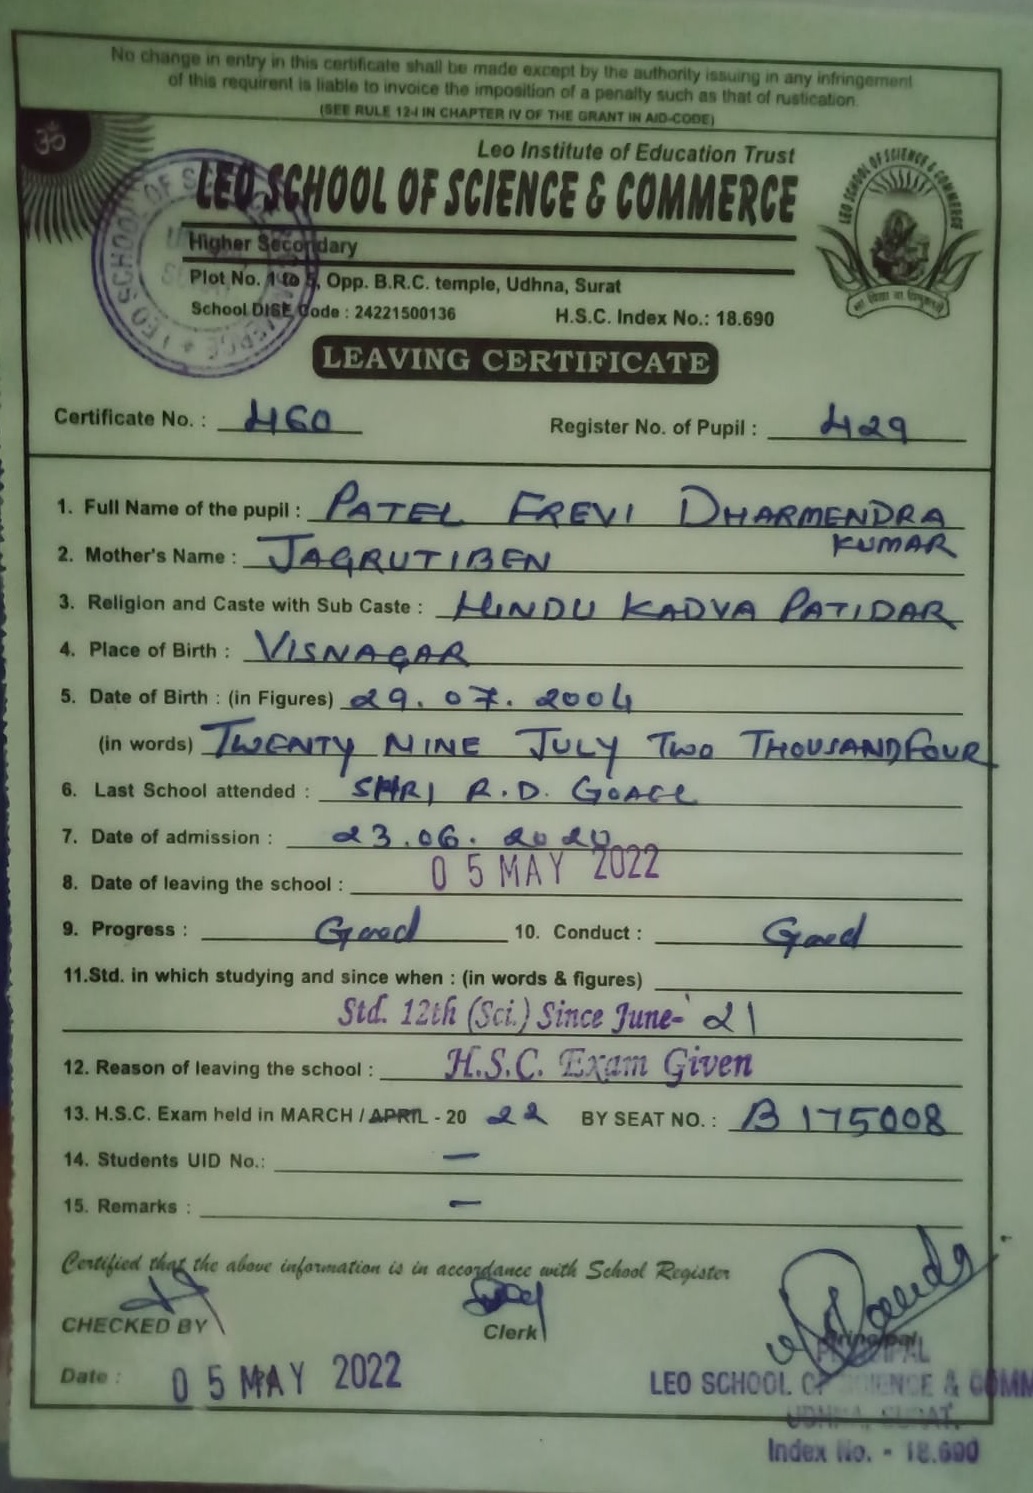 No change in entry in this certificate shall be made except by the authority issuing in any infringement
of this requirent is liable to invoice the imposition of a penalty such as that of rustication.
(SEE RULE 12-I IN CHAPTER IV OF THE GRANT IN AID-CODE)
ॐ
Leo Institute of Education Trust
LEO SCHOOL OF SCIENCE & COMMERCE
Higher Secondary
Plot No. 1 to 5, Opp. B.R.C. temple, Udhna, Surat
School DISE Code : 24221500136 H.S.C. Index No.: 18.690
LEO SCHOOL OF SCIENCE & COMMERCE
LEAVING CERTIFICATE
Certificate No. : 460 Register No. of Pupil : 429
1. Full Name of the pupil : PATEL FREVI DHARMENDRA
KUMAR
2. Mother's Name : JAGRUTIBEN
3. Religion and Caste with Sub Caste : HINDU KADVA PATIDAR
4. Place of Birth : VISNAGAR
5. Date of Birth : (in Figures) 29.07.2004
(in words) TWENTY NINE JULY TWO THOUSAND FOUR
6. Last School attended : SHRI R.D. GOAEL
7. Date of admission : 23.06.2020
8. Date of leaving the school : 05 MAY 2022
9. Progress : Good 10. Conduct : Good
11.Std. in which studying and since when : (in words & figures)
Std. 12th (Sci.) Since June-'21
12. Reason of leaving the school : H.S.C. Exam Given
13. H.S.C. Exam held in MARCH / APRIL - 20 22 BY SEAT NO. : B 175008
14. Students UID No.: —
15. Remarks : —
Certified that the above information is in accordance with School Register
CHECKED BY Clerk Principal
Date : 05 MAY 2022
PRINCIPAL
LEO SCHOOL OF SCIENCE & COMM
UDHNA, SURAT.
Index No. - 18.690